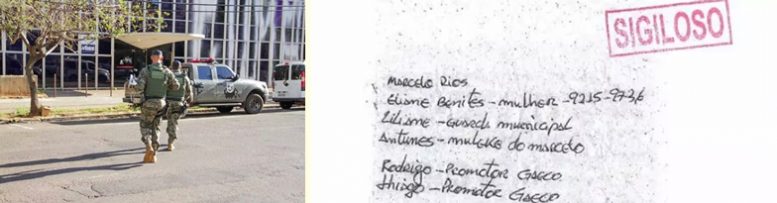 SIGILOSO
MARCELO RIOS
Eliane Benites - mulher - 9215-9736
Liliane - Guarda municipal
Antunes - muleke do marcelo
Rodrigo - Promotor GAECO
thiago - Promotor GAECO